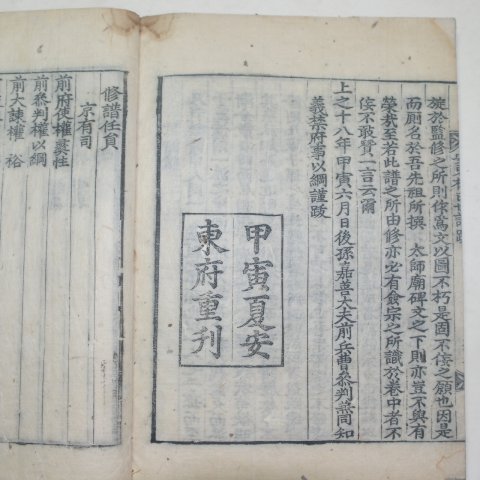 旋於監修之所則侏爲文以圖不朽是固不侫之願也因是
而厠名於吾先祖所撰 太師廟碑文之下則亦豈不與有
榮哉至若此譜之所由修亦必有僉宗之所識於卷中者不
侫不敢贅一言云爾
上之十八年甲寅六月日後孫嘉善大夫前兵曹叅判兼同知
義禁府事以綱謹跋
甲寅夏安
東府重刊
修譜任員
京有司
前府使權
前叅判權以綱
前大諫權 𥙿